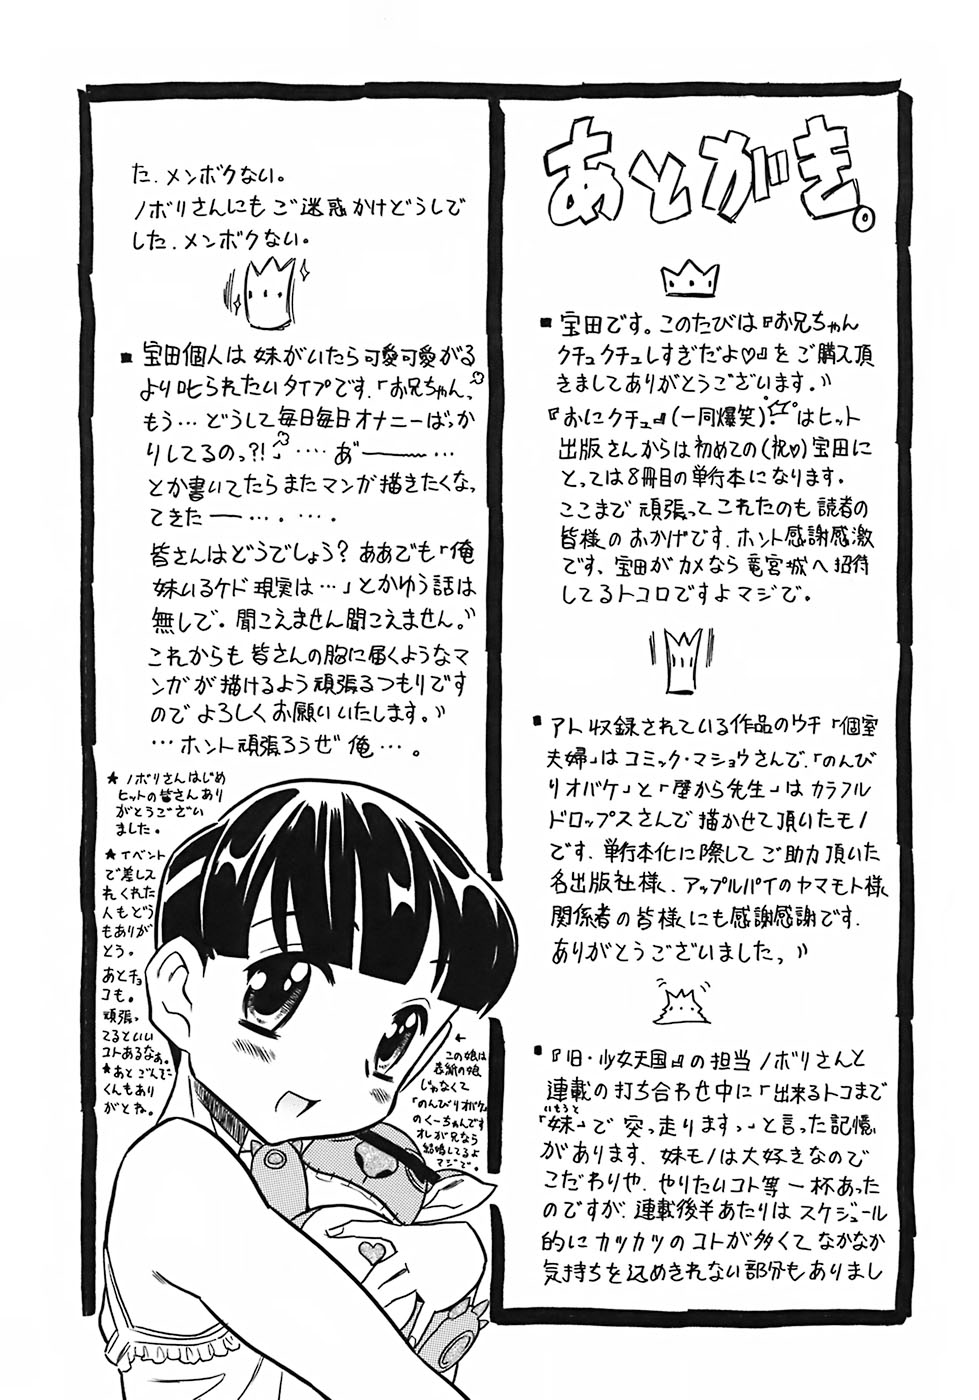 あとがき。
■ 宝田です。このたびは『お兄ちゃん
クチュクチュしすぎだよ♡』をご購入頂
きましてありがとうございます。〃
『おにクチュ』(一同爆笑)はヒット
出版さんからは初めての(祝♡)宝田に
とっては8冊目の単行本になります。
ここまで頑張ってこれたのも読者の
皆様のおかげです、ホント感謝感激
です、宝田がカメなら竜宮城へ招待
してるトコロですよマジで。
■ アト収録されている作品のウチ「個室
夫婦」はコミック・マショウさんで、「のんび
りオバケ」と「壁から先生」はカラフル
ドロップスさんで描かせて頂いたモノ
です、単行本化に際してご助力頂いた
各出版社様、アップルパイのヤマモト様
関係者の皆様にも感謝感謝です、
ありがとうございましたっ〃
■『旧・少女天国』の担当ノボリさんと
連載の打ち合わせ中に「出来るトコまで
「妹」で突っ走りますっ」と言った記憶
いもうと
があります、妹モノは大好きなので
こだわりや、やりたいコト等一杯あった
のですが、連載後半あたりはスケジュール
的にカツカツのコトが多くてなかなか
気持ちを込めきれない部分もありまし
た、メンボクない。
ノボリさんにもご迷惑かけどうしで
した、メンボクない。
■ 宝田個人は妹がいたら可愛可愛がる
より叱られたいタイプです、「お兄ちゃん、
もう…どうして毎日毎日オナニーばっか
りしてるのっ?!」…‥あ゛ー……
とか書いてたらまたマンガ描きたくなっ
てきたー…・…・
皆さんはどうでしょう?ああでも「俺
妹いるケド現実は…」とかゆう話は
無しで。聞こえません聞こえません。〃
これからも皆さんの胸に届くようなマ
ンガが描けるよう頑張るつもりです
のでよろしくお願いいたします。〃
…ホント頑張ろうぜ俺…。
★ノボリさんはじめ
ヒットの皆さんあり
がとうござい
ました。
★イベント
で差し入
れくれた
人もどう
もありが
とう。
あとチョ
コも。
頑張っ
てるといい
コトあるなぁ。
★あとごんで
くんもあり
がとね。
←
この娘は
表紙の娘
じゃなくて
「のんびりオバケ」
のくーちゃんです
オレが兄なら
結婚してるよ
マジで。